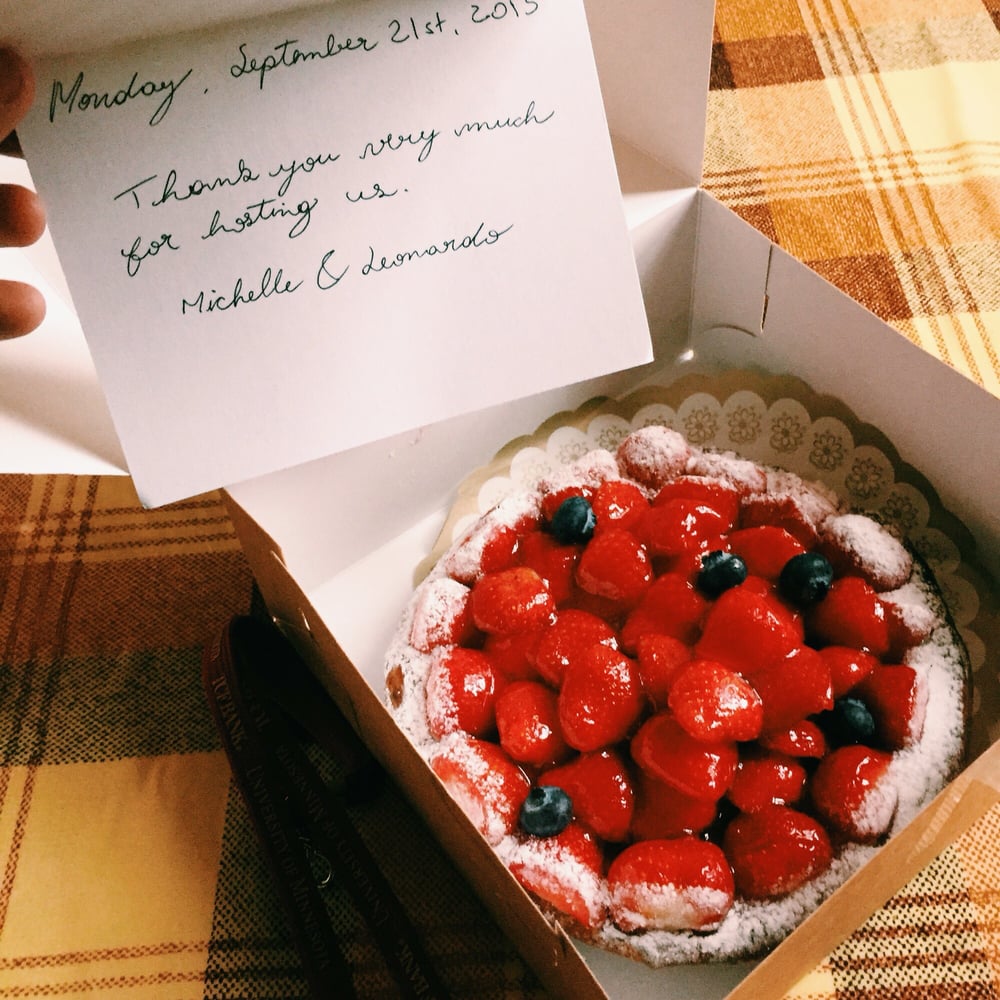 Monday, September 21st, 2015
Thank you very much
for hosting us.
Michelle & Leonardo